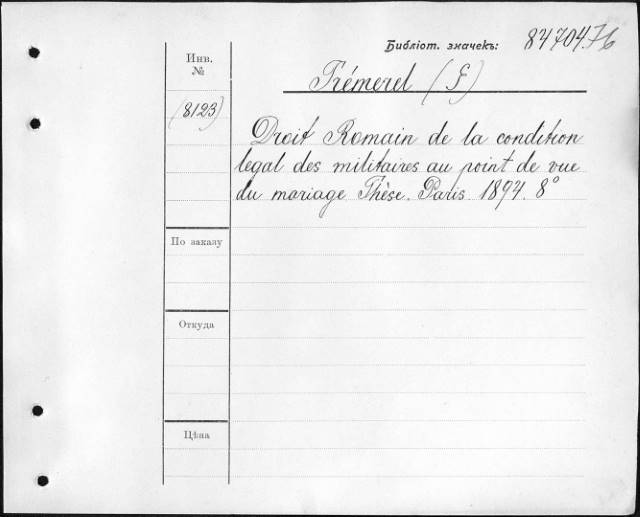 Библіот. значекъ: 84704.76
Инв.
№
Trémerel (F)
(8123)
Droit Romain de la condition
legal des militaires au point de vue
du mariage Thèse. Paris 1894. 8°
По заказу
Откуда
Цѣна